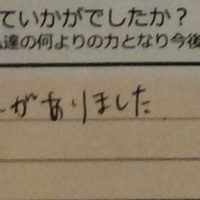 ていかがでしたか？
達の何よりの力となり今後
がありました